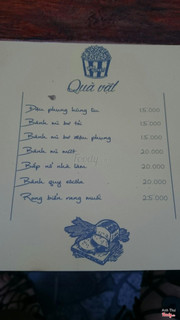 Quà vặt
Đậu phụng húng lìu 15.000
Bánh mì bơ tỏi 15.000
Bánh mì bơ đậu phụng 15.000
Bánh mì mứt 20.000
Bắp nổ nhà làm 20.000
Bánh quy 20.000
Rong biển rang muối 25.000